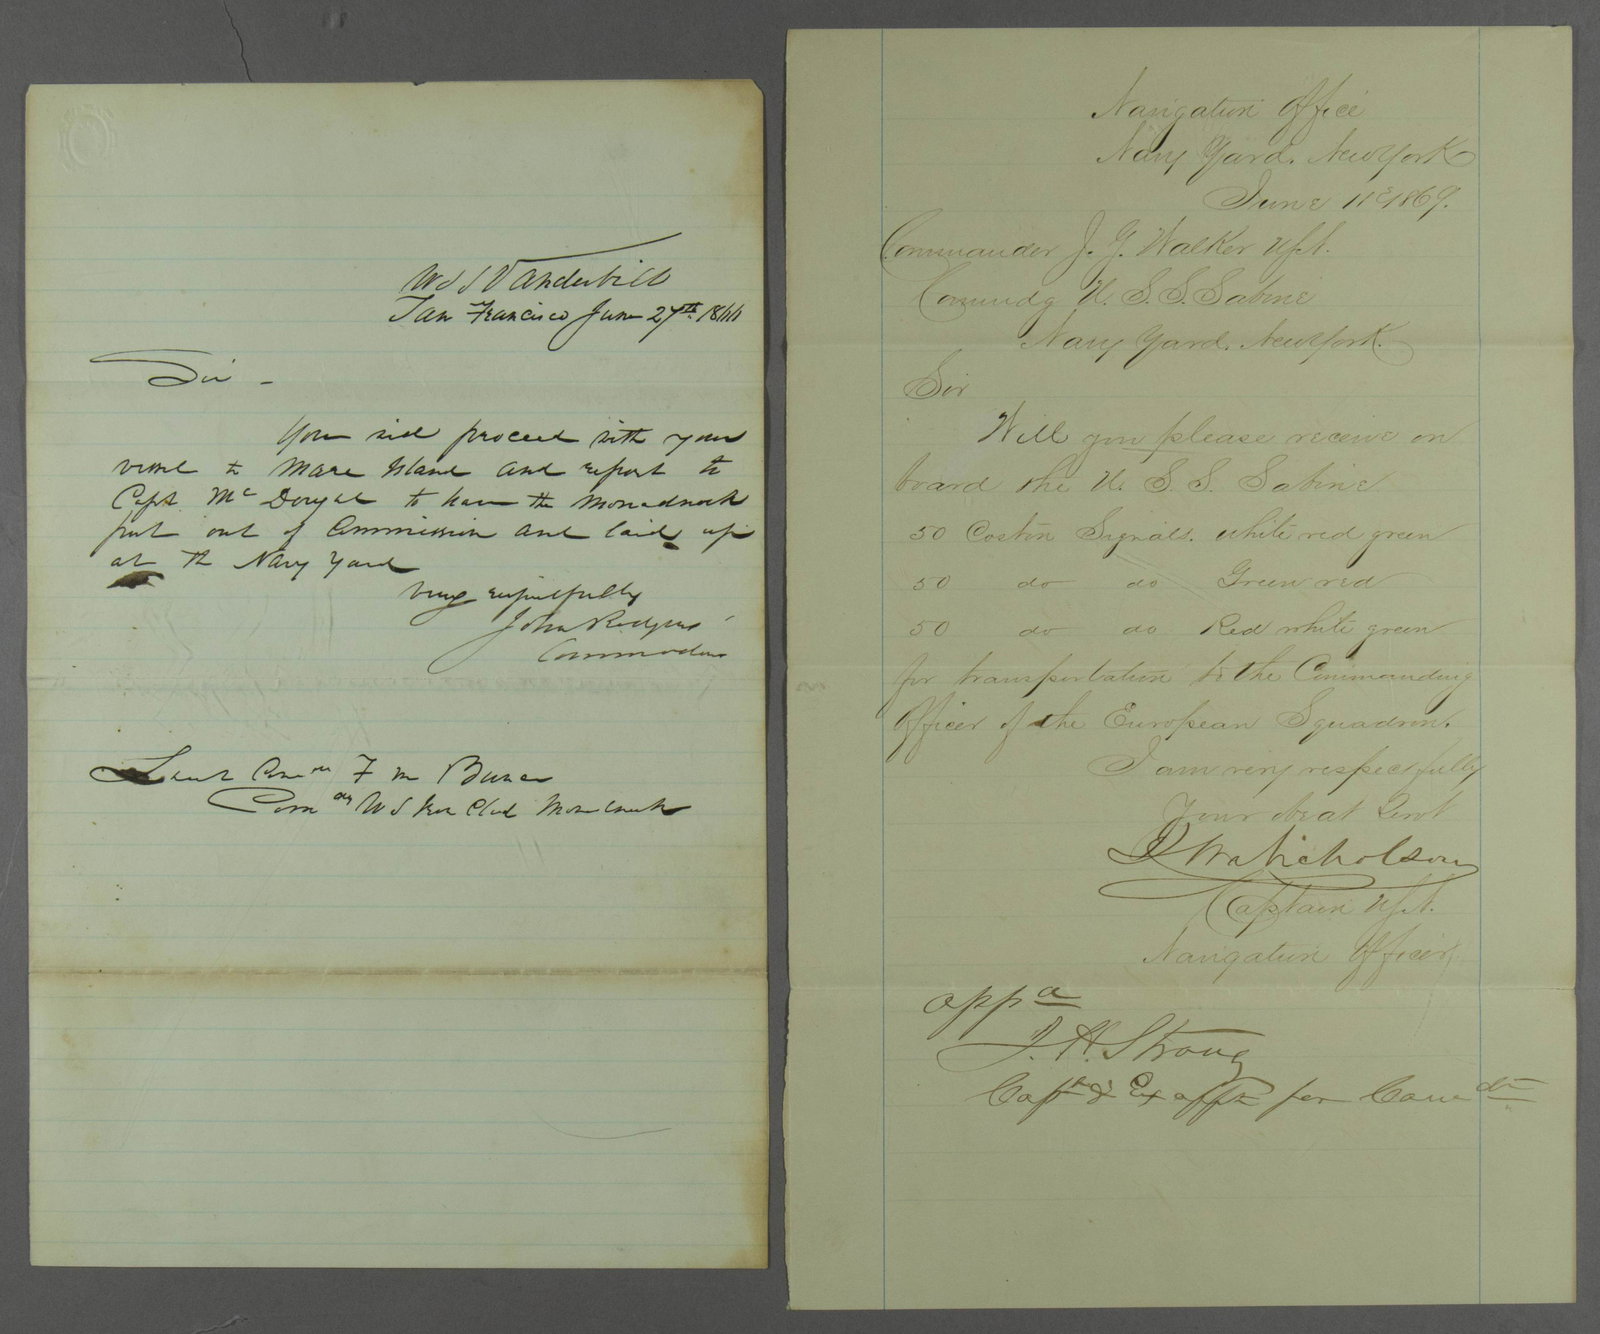 U S S Vanderbilt
San Francisco June 27th 1866
Sir -
You will proceed with your
vessel to Mare Island and report to
Capt. Mc Dougal to have the Monadnock
put out of Commission and laid up
at the Navy Yard
Very respectfully
John Rodgers
Commodore
Lieut Comr F M Bunce
Comdg U S Iron Clad Monadnock
Navigation Office
Navy Yard. New York
June 11th 1869.
Commander J. G. Walker U.S.N.
Commdg U. S. S. Sabine
Navy Yard. New York.
Sir
Will you please receive on
board the U. S. S. Sabine
50 Coston Signals. white red green
50 do do Green red
50 do do Red white green
for transportation to the Commanding
Officer of the European Squadron.
I am very respectfully
Your obeat Servt
Nicholson
Captain U.S.N.
Navigation Officer
appd
J. H. Strong
Capt & Ex offr for Comdt